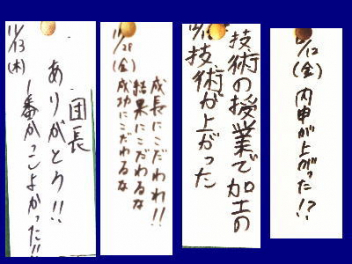 12/12(金)
内申が上がった!?
技術の授業で加工の
技術が上がった
11/28(金)
成長にこだわれ!!
結果にこだわるな
成功にこだわるな
11/13(木)
団長
ありがとう!!
1番かっこよかった!!